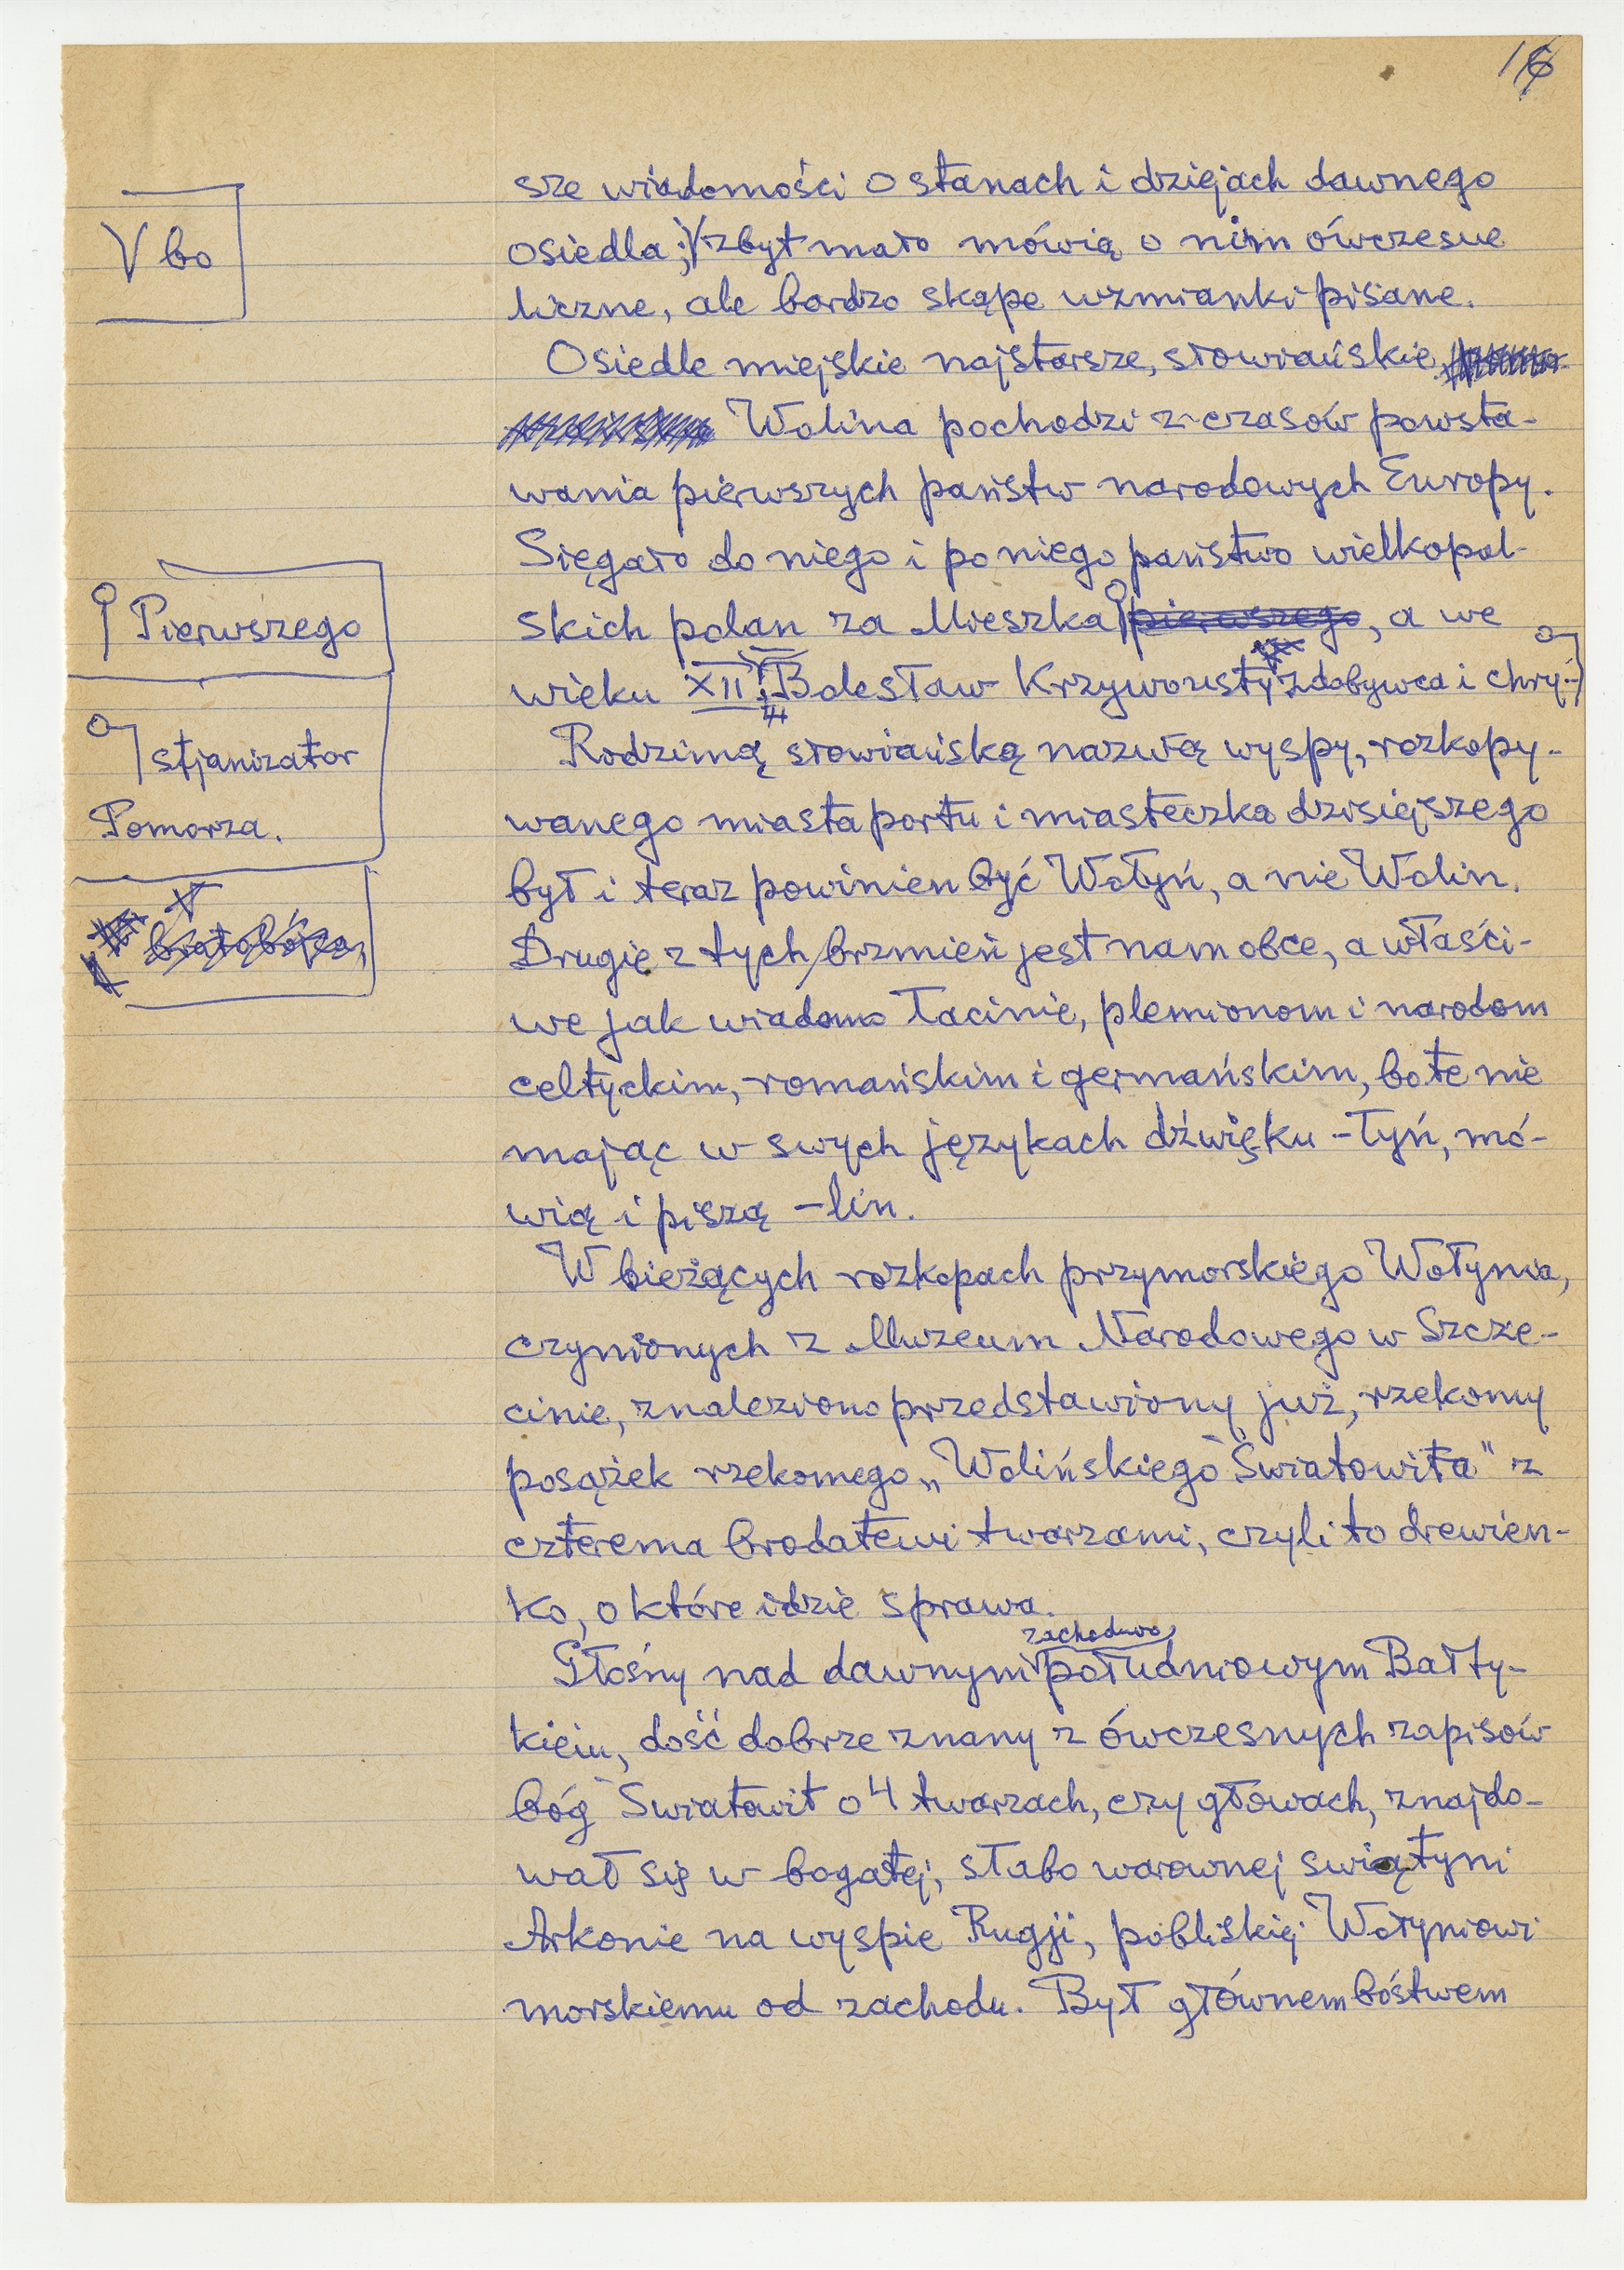 16
sze wiadomości o stanach i dziejach dawnego
V bo
osiedla; V zbyt mało mówią o nim ówczesne
liczne, ale bardzo skąpe wzmianki pisane.
Osiedle miejskie najstarsze, słowiańskie
Wolina pochodzi z czasów powsta-
wania pierwszych państw narodowych Europy.
Sięgało do niego i po niego państwo wielkopol-
Pierwszego
skich polan za Mieszka pierwszego, a we
wieku XII Bolesław Krzywousty zdobywca i chry-
stjanizator
Pomorza.
bratobójca,
Rodzimą słowiańską nazwą wyspy, rozkopy-
wanego miasta portu i miasteczka dzisiejszego
był i teraz powinien być Wołyń, a nie Wolin.
Drugie z tych brzmień jest nam obce, a właści-
we jak wiadomo łacinie, plemionom i narodom
celtyckim, romańskim i germańskim, bo te nie
mając w swych językach dźwięku -łyń, mó-
wią i piszą -lin.
W bieżących rozkopach przymorskiego Wołynia,
czynionych z Muzeum Narodowego w Szcze-
cinie, znaleziono przedstawiony już, rzekomy
posążek rzekomego „Wolińskiego Światowita" z
czterema brodatemi twarzami, czyli to drewien-
ko, o które idzie sprawa.
zachodnio
Głośny nad dawnym południowym Bałty-
kiem, dość dobrze znany z ówczesnych zapisów
bóg Światowit o 4 twarzach, czy głowach, znajdo-
wał się w bogatej, słabo warownej świątyni
Arkonie na wyspie Rugji, pobliskiej Wołyniowi
morskiemu od zachodu. Był głównem bóstwem